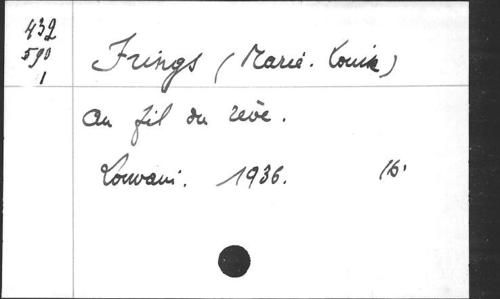 439
590
1
Frings (Marie-Louise)
Au fil du rêve.
Louvain. 1936. 16.